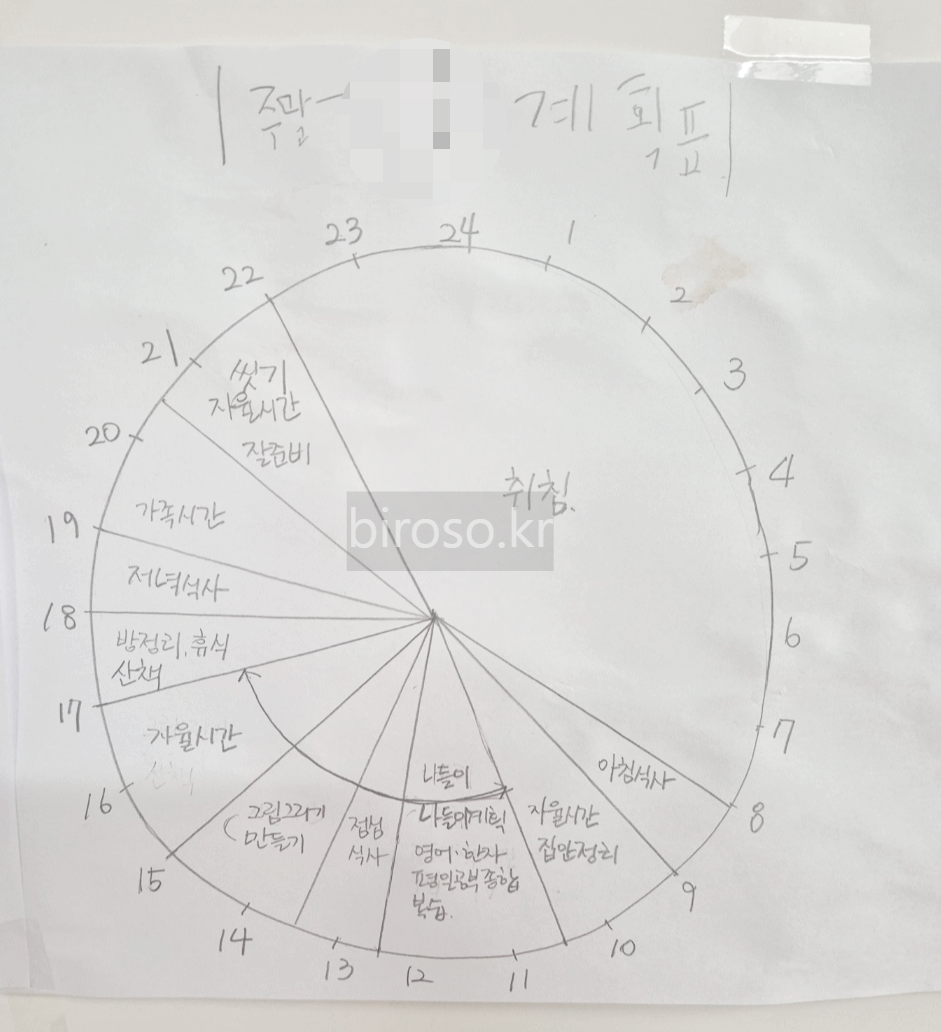 주말 계획표
24
1
2
3
4
5
6
7
8
9
10
11
12
13
14
15
16
17
18
19
20
21
22
23
취침.
아침식사
자율시간
집안정리
나들이
나들이계획
영어·한자
평일공부종합
복습.
점심
식사
그림그리기
만들기
자율시간
산책
방정리, 휴식
산책
저녁식사
가족시간
씻기
자율시간
잘준비
biroso.kr